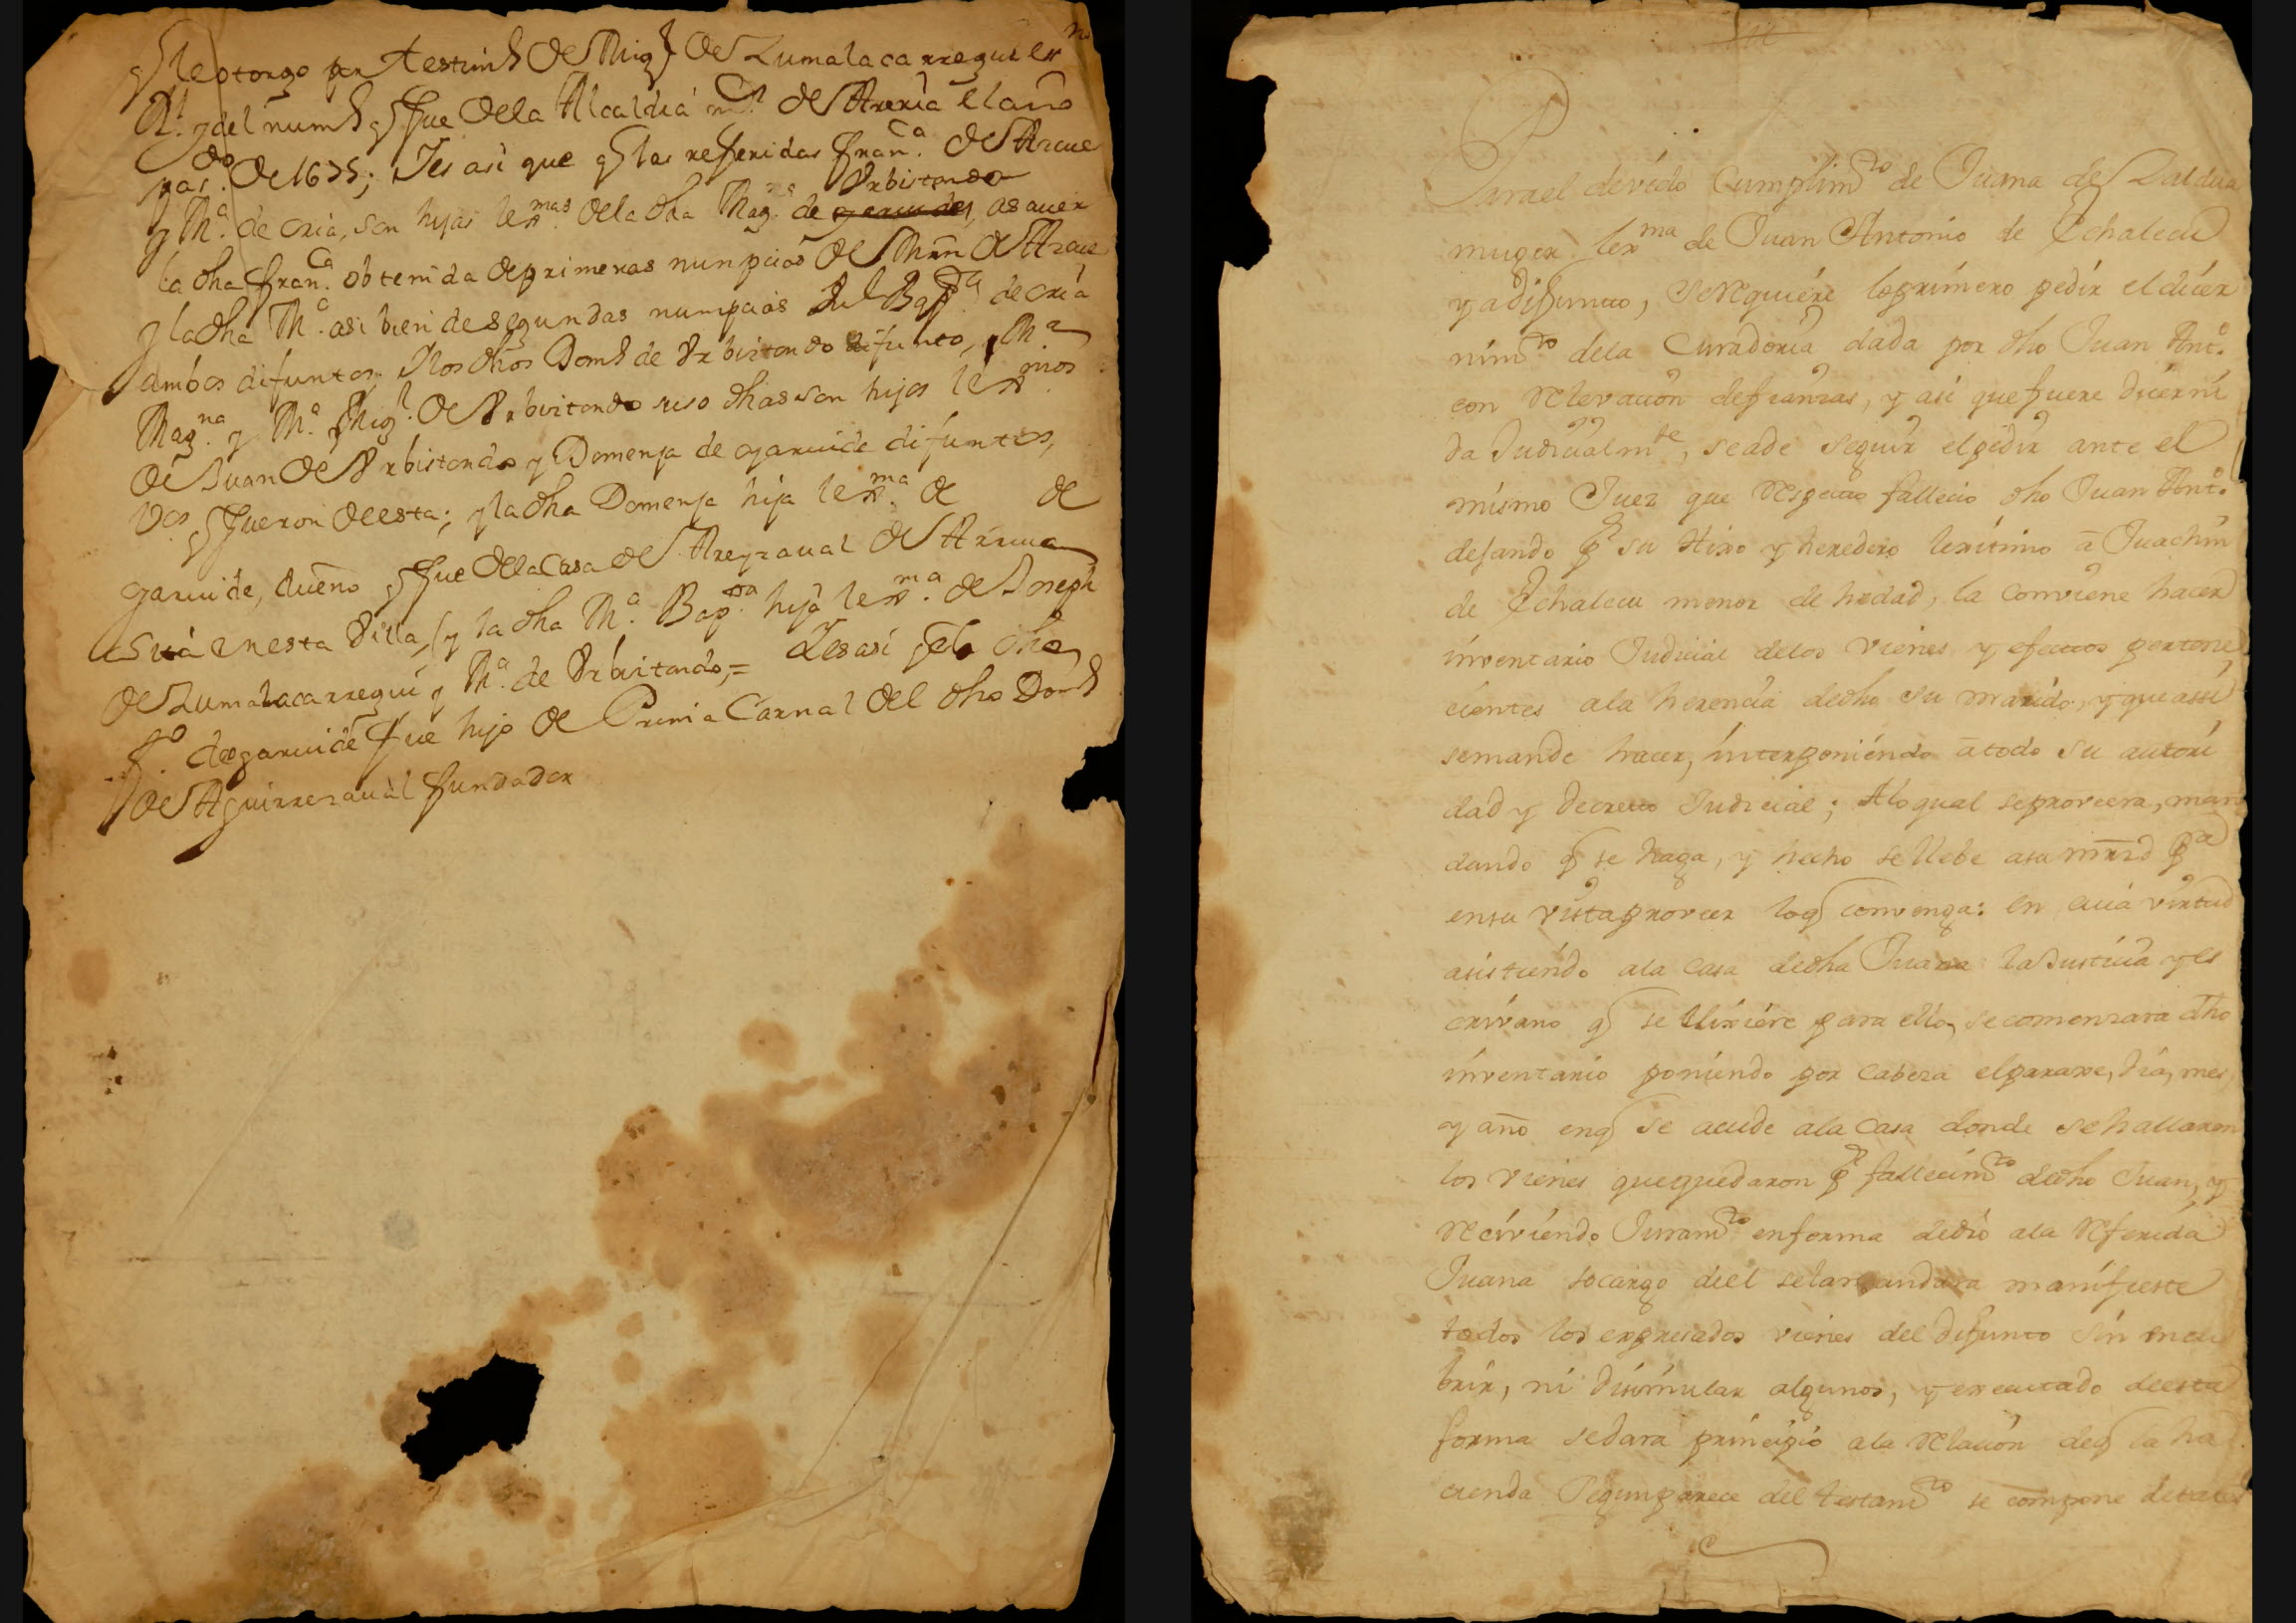 q̃ le otorgo por testimº de Migl de Zumalacarregui esno
Rl. y del numº q̃ fue de la Alcaldia mr. de Areria el año
pasdo. de 1635; Y es asi que q̃ las referidas Franca. de Arcue
y Ma. de oria, son hijas lexmas. de la dha Magna de garuide, Vrbistondo as aver
la dha Franca. obtenida de primeras nunpcias de Mrn de Arcue
y la dha Ma. asi bien de segundas numpcias de Bapta. de oria
ambos difuntos; Y los dhos Domº de Vrbistondo difunto, y Ma
Magna. y Ma. y Migl. de Vrbistondo suso dhas son hijos lexmos.
de Juan de Vrbistondo y Domenja de garuide difuntos,
Vos. q̃ fueron de esta; y la dha Domenja hija lexma. de de
garuide, dueño q̃ fue de la Casa de Areyzaual de Arriua
sita en esta Villa, y la dha Ma. Bapta. hija lexma. de Joseph
de Zumalacarregui y Ma. de Vrbistondo,= Y es asi q̃ el dho
Fo. de garuide fue hijo de Prima Carnal del dho Domº
de Aguirrezaual fundador
Para el devido cumplimto de Juana de Zaldua
muger lexma de Juan Antonio de Echalecu
ya difunto, se rrequiere lo primero pedir el dicer
nimto de la curadoria dada por dho Juan Anto.
con relevacion de fianzas, y asi que fuere dicerni
da Judicialmte, se a de seguir el pedir ante el
mismo Juez que respecto fallecio dho Juan Anto.
dejando pr su Hixo y heredero lexitimo a Juachin
de Echalecu menor de hedad, la conviene hacer
inventario Judicial de los vienes y efectos pertene
cientes a la herencia de dho su marido, y que assi
se mande hacer, interponiendo a todo su autori
dad y decreto Judicial; A lo qual se proveera, man
dando q̃ se haga, y hecho se llebe a su mrd pa
en su vista proveer lo q̃ convenga: en cuia virtud
asistiendo a la casa de dha Juana la Justicia y es
crivano q̃ se elixiere para ello, se comenzara dho
inventario poniendo por cabeza el paraxe, dia, mes,
y año en q̃ se acude a la casa donde se hallaren
los vienes que quedaron pr fallecimto de dho Juan, y
reciviendo Juramto en forma de dro a la referida
Juana so cargo de el se la mandara manifieste
todos los expresados vienes del difunto sin encu
brir, ni disimular algunos, y executado de esta
forma se dara principio a la relacion de q̃ la ha
cienda segun parece del testamto se compone de